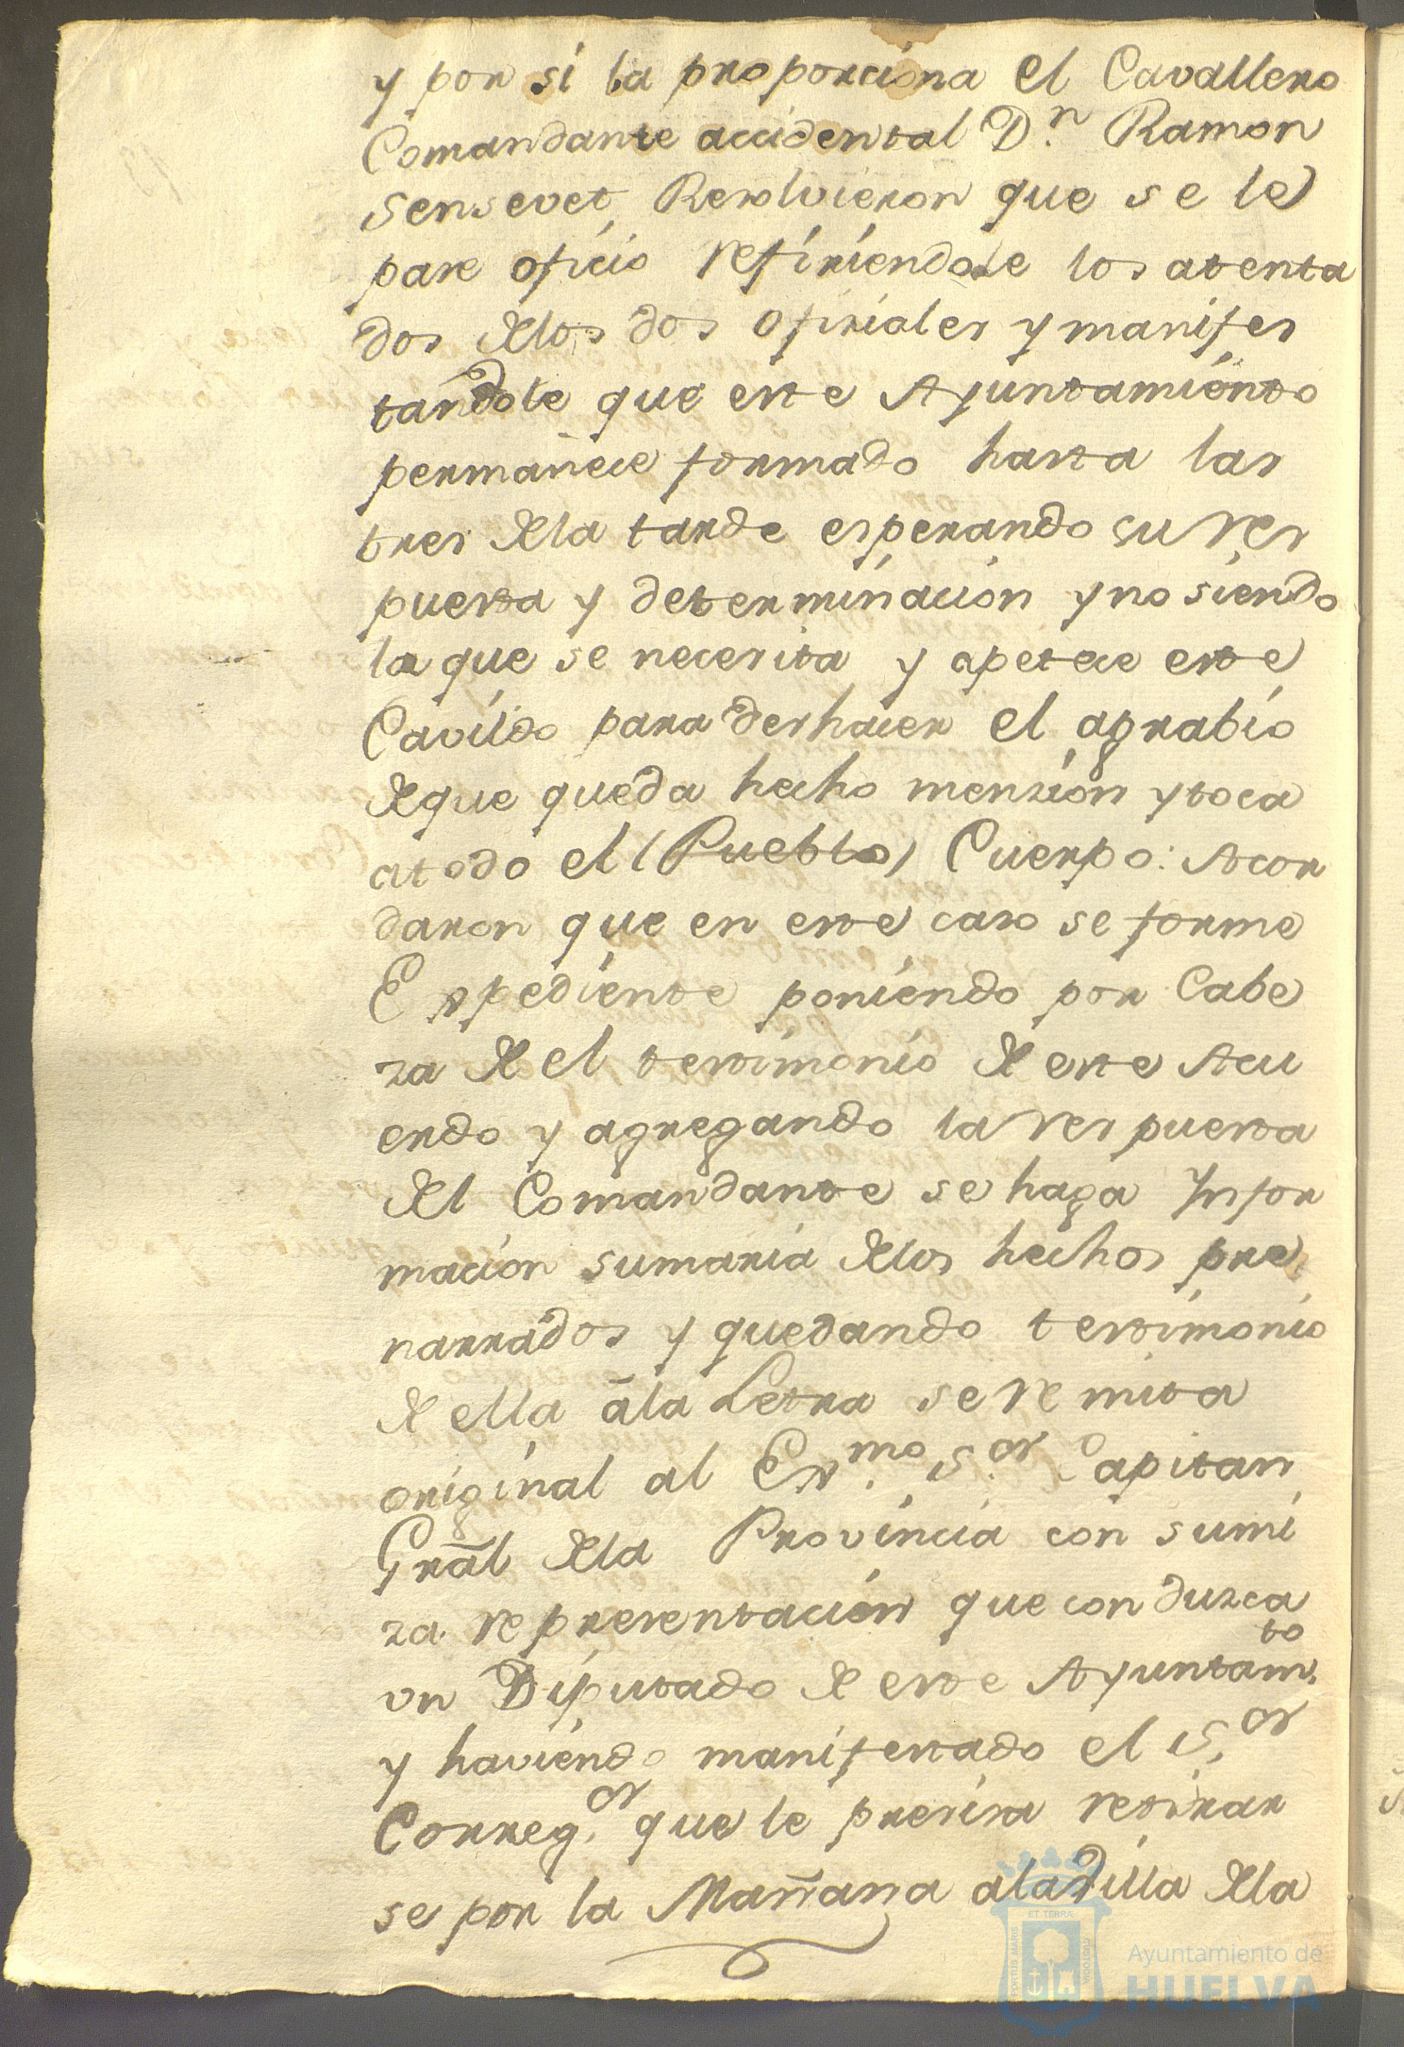 y por si la proporciona el Cavallero
Comandante accidental Dn. Ramon
Sensevet, Resolvieron que se le
pase oficio refiriendole los atenta
dos delos dos oficiales y manifes
tandole que este Ayuntamiento
permanece formado hasta las
tres dela tarde esperando su res
puesta y determinacion y no siendo
la que se necesita y apetece este
Cavildo para deshacer el agrabio
deque queda hecho menzion y toca
atodo el (Pueblo) Cuerpo: Acor
daron que en este caso se forme
Expediente poniendo por Cabe
za de el testimonio de este Acu
erdo y agregando la respuesta
del Comandante se haga Infor
macion sumaria delos hechos pre
narrados y quedando testimonio
de ella ála Letra se remita
original al Exmo. Sor. Capitan
Gral dela Provincia con sumi
za representacion que conduzca
un Diputado de este Ayuntamto.
y haviendo manifestado el Sor.
Correg.or que le precisa retirar
se por la Mañana ala Villa dela
ET TERRÆ
Ayuntamiento de
HUELVA